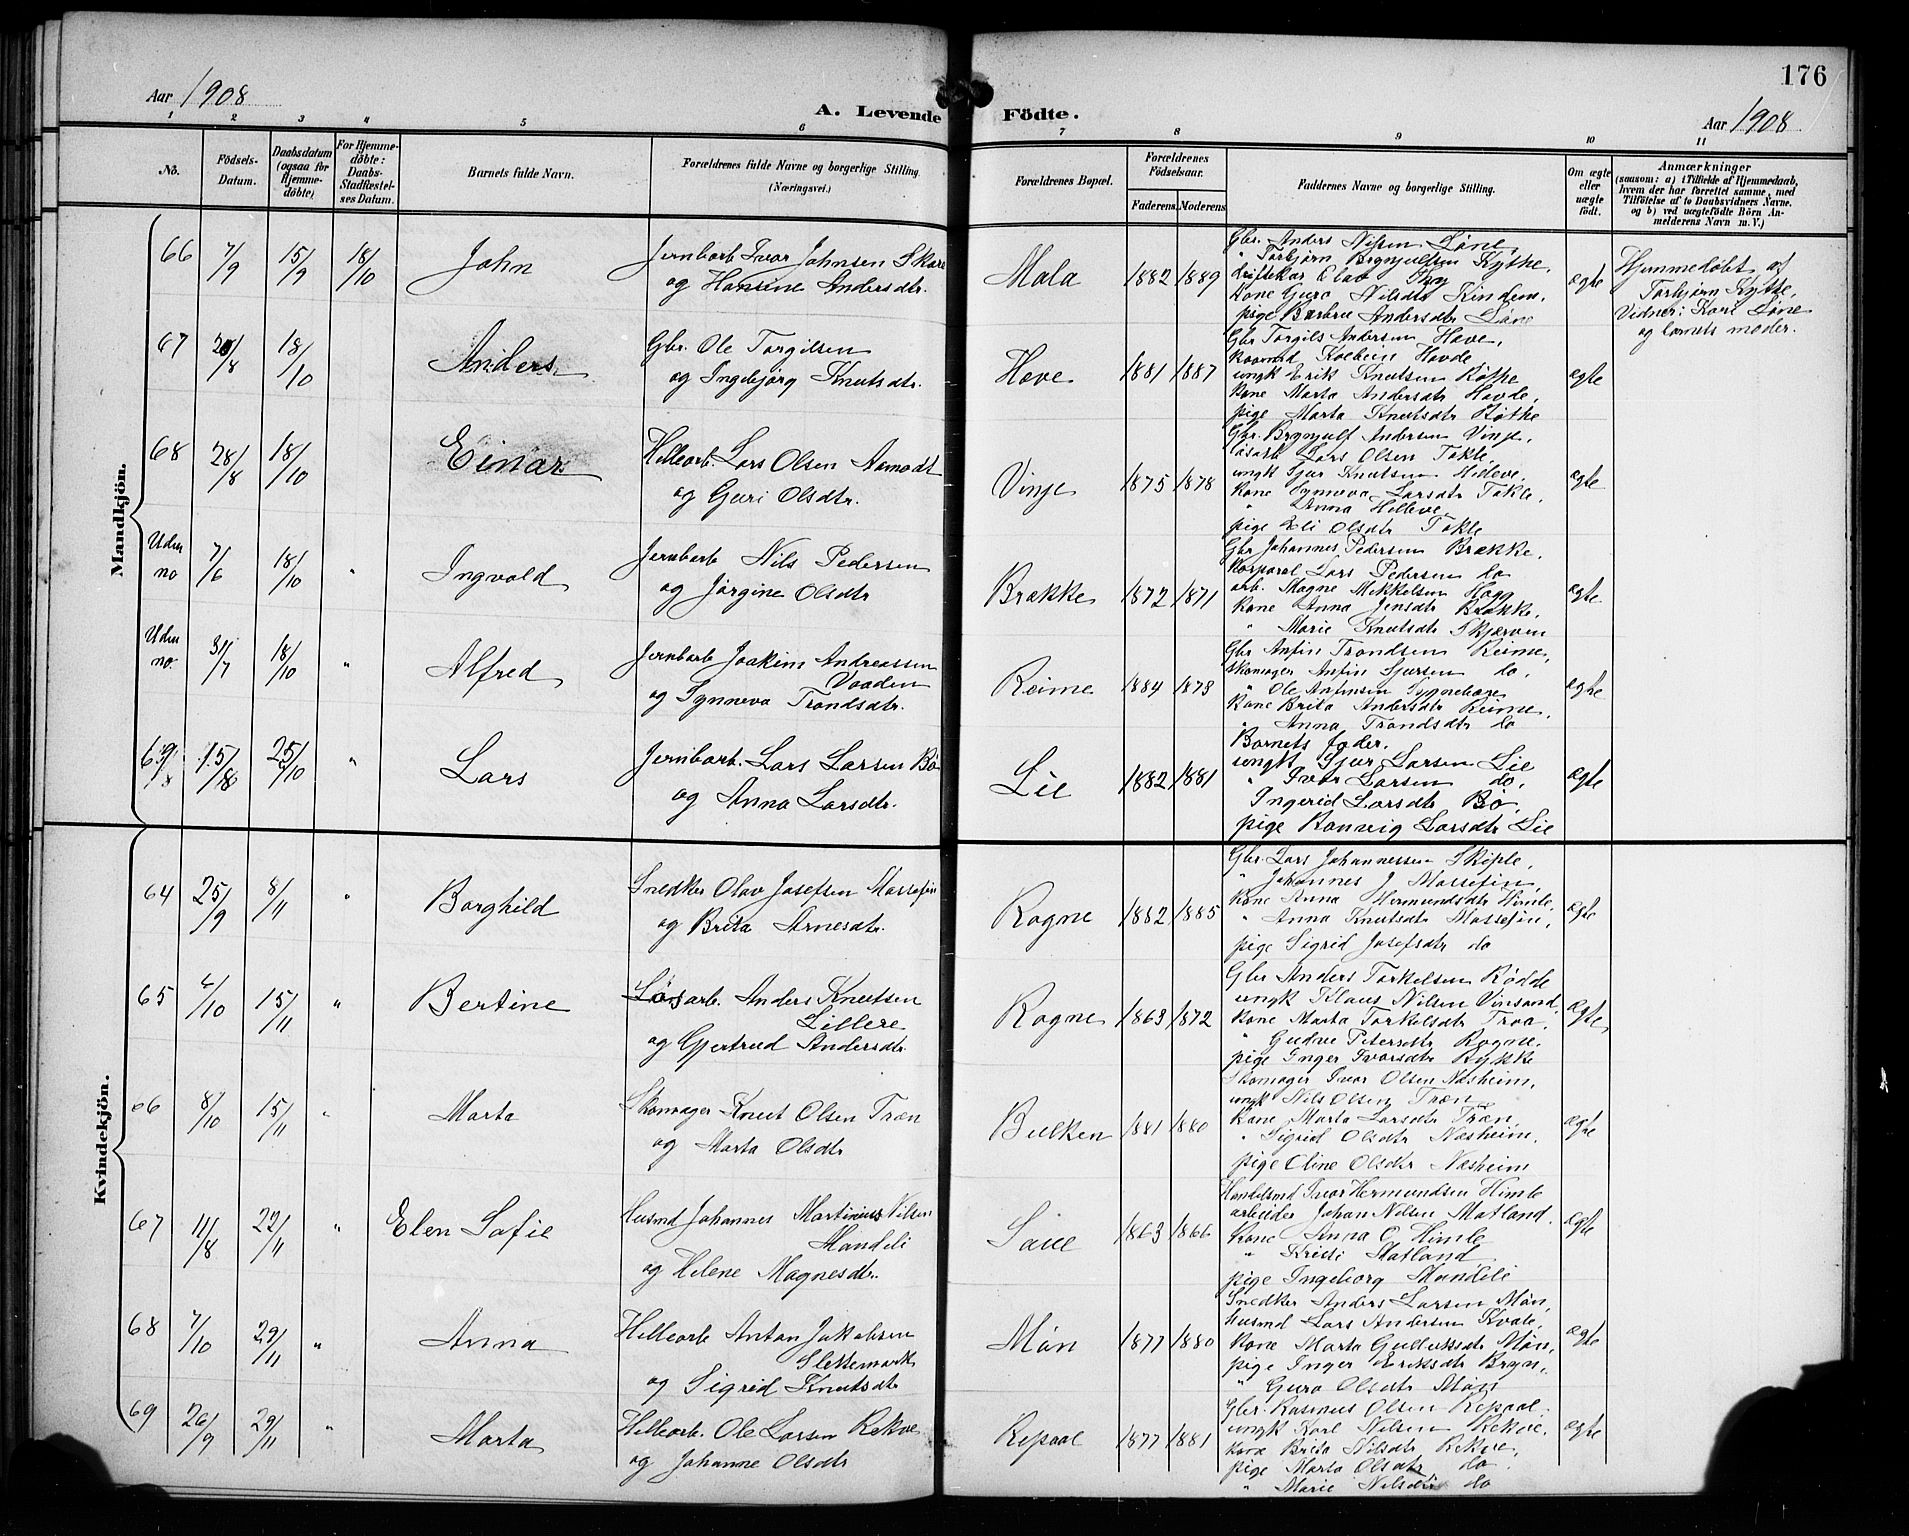 176
Aar 1908
A. Levende Födte.
Aar 1908
1 2 3 4 5 6 7 8 9 10 11
No.
Födsels-Datum.
Daabsdatum (ogsaa for Hjemmedøbte)
For Hjemmedøbte: Daabs-Stadfæstelses Datum.
Barnets fulde Navn.
Forældrenes fulde Navne og borgerlige Stilling. (Næringsvei.)
Forældrenes Bopæl.
Forældrenes Födselsaar.
Faderens. Moderens.
Faddernes Navne og borgerlige Stilling.
Om ægte eller uægte födt.
Anmærkninger
(saasom: a) i Tilfælde af Hjemmedaab,
hvem der har forrettet samme, med
Tilföielse af to Daabsvidners Navne.
og b) ved uægtefödte Börn Anmelderens Navn m. V.)
Mandkjön.
66 7/9 15/9 18/10 John
Jernbarb Ivar Johnsen Skare
og Hansine Andersdtr.
Mala 1882 1889
Gbr. Anders Nilsen Løne
" Torbjørn Brynjulfsen Kythe,
Kone Guro Nilsdtr Kindem,
pige Barbra Andersdtr Løne
ægte
Hjemmedøbt af
Torbjørn Kytte,
Vidner: Kari Løne
og barnets moder.
67 /8 18/10 Anders
Gbr. Ole Torgilsen
og Ingebjørg Knutsdtr.
Hove 1881 1887
Gbr Torgils Andersen Hove,
Kolbein Hovde
ungk Erik Knutsen Røthe
Kone Marta Andersdtr Hovde,
pige Marta Knutsdtr Røthe
ægte
68 28/8 18/10 Einar
Hellearb. Lars Olsen Aamodt
og Guri Olsdtr.
Vinje 1875 1878
Gbr. Brynjulf Andersen Vinje,
løsarb Lars Olsen Tøkle,
ungk Sjur Knutsen Helleve,
Kone Synneva Larsdtr Tøkle,
" Anna Helleve,
pige Eli Olsdtr Tøkle
ægte
Uden no 7/6 18/10 " Ingvald
Jernbarb Nils Pedersen
og Jørgine Olsdtr
Brække 1872 1871
Gbr Johannes Pedersen Brække,
Korporal Lars Pedersen do
arb. Magne Mikkelsen Hagg
Kone Anna Jensdtr Brække,
" Marie Knutsdtr Skjerven
ægte
Uden no. 31/7 18/10 " Alfred
Jernbarb Joakim Andreassen
Vaaden
og Synneva Trondsdtr.
Reime 1884 1873
Gbr Anfin Trondsen Reime,
skomager Anfin Sjursen do,
" Ole Anfinsen Sygnehage
Kone Brita Andersdtr Reime,
" Anna Trondsdtr do
ægte
69 15/8 25/10 " Lars
Jernbarb. Lars Larsen Bø
og Anna Larsdtr.
Lie 1882 1881
Barnets fader.
ungk Sjur Larsen Lie
" Ivar Larsen do,
Ingerid Larsdtr Bø,
pige Ranveig Larsdtr Lie
ægte
Kvindekjön.
64 25/9 8/11 " Borghild
Snedker Olav Josefsen Massefin
og Brita Arnesdtr.
Rogne 1882 1885
Gbr. Lars Johannessen Skiple,
" Johannes J Massefin,
Kone Anna Hermundsdtr Himle,
" Anna Knutsdtr Massefin,
pige Sigrid Josefsdtr do
ægte
65 /10 15/11 " Bertine
Løsarb. Anders Knutsen
Lillere
og Gjertrud Andersdtr.
Rogne 1863 1872
Gbr Anders Torkelsen Rødde
ungk Klaus Nilsen Vinsand,
Kone Marta Torkelsdtr Troa,
" Gudve Petersdtr Rogne,
pige Inger Ivarsdtr Rykke
ægte
66 8/10 15/11 " Marta
Skomager Knut Olsen Træn
og Marta Olsdtr
Bulken 1881 1880
Skomager Ivar Olsen Næsheim,
ungk Nils Olsen Træn
Kone Marta Larsdtr Træn,
" Sigrid Olsdtr Næsheim,
pige Oline Olsdtr Næsheim
ægte
67 11/8 22/11 " Elen Sofie
Husmd Johannes Martinius Nilsen
Mandeli
og Helene Magnesdtr.
Saue 1863 1866
Handelsmd Ivar Hermundsen Himle
arbeider Johan Nilsen Matland.
Kone Anna O Himle
" Kristi Matland
pige Ingeborg Mandeli
ægte
68 7/10 29/11 " Anna
Hellearb Anton Jakobsen
Slettemark
og Sigrid Knutsdtr
Møn 1877 1880
Snedker Anders Larsen Møn,
husmd Lars Andersen Kvale,
Kone Marta Gulleiksdtr Møn,
pige Inger Eriksdtr Bryn,
" Guro Olsdtr Møn
ægte
69 26/9 29/11 " Marta
Hellearb. Ole Larsen Rekve
og Johanne Olsdtr
Repaal 1877 1881
Gbr. Rasmus Olsen Repaal
ungk Karl Nilsen Rekve,
Kone Brita Nilsdtr Rekve,
pige Marta Olsdtr do
" Marie Nilsdtr do
ægte